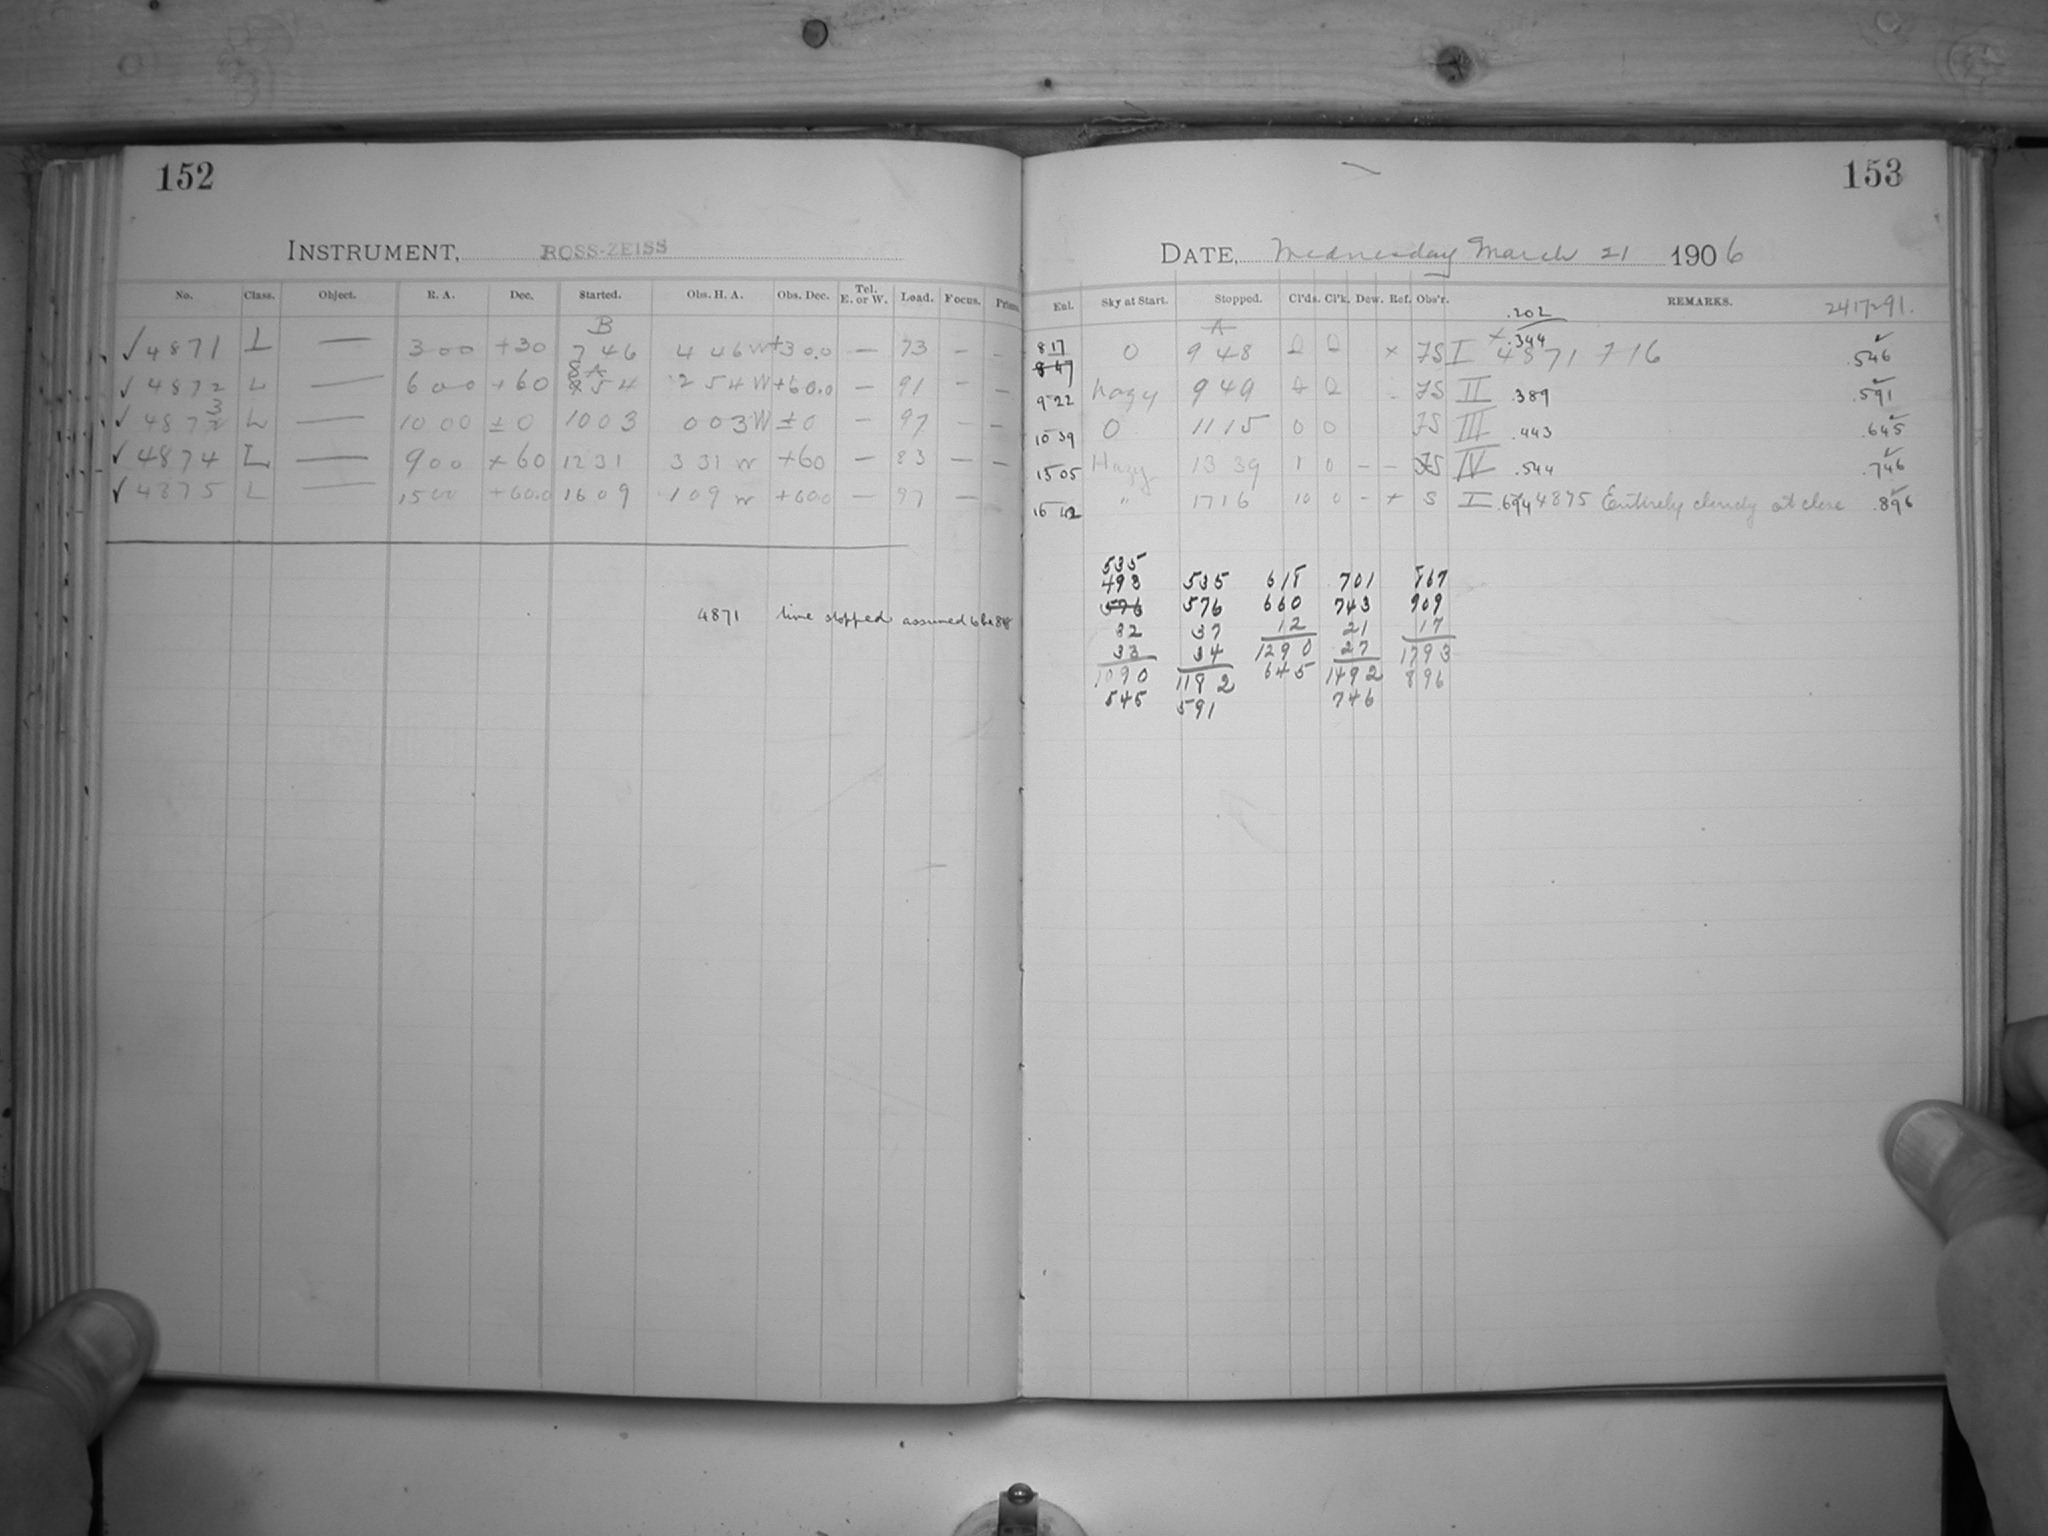 152
INSTRUMENT, ROSS-ZEISS
No. Class. Object. R. A. Dec. Started. Obs. H. A. Obs. Dec. Tel. E. or W. Load. Focus. Prism.
B
✓ 4871 L — 3 00 +30 7 46 4 46 W +30.0 — 73 — —
✓ 4872 L — 6 00 +60 8 54 2 54 W +60.0 — 91 — —
✓ 4873 L — 10 00 ± 0 10 03 0 03 W ± 0 — 97 — —
✓ 4874 L — 9 00 +60 12 31 3 31 W +60 — 83 — —
✓ 4875 L — 15 00 +60.0 16 09 1 09 W +60.0 — 97 —
4871 time stopped assumed to be 848
153
DATE, Wednesday March 21 1906
Exl. Sky at Start. Stopped. Cl'ds. Cl'k. Dew. Ref. Obs'r. REMARKS. 2417291.
.202
A
.344
8 17 0 9 48 0 0 × FS I 4871 7 16 .546
8 47
9 22 hazy 9 49 FS II .389 .591
10 39 0 11 15 0 0 FS III .443 .645
15 05 Hazy 13 39 1 0 — — FS IV .544 .746
16 42 " 17 16 10 0 - × S I .694 4875 Entirely cloudy at close .896
535
493 535 618 701 867
576 576 660 743 909
32 37 12 21 17
33 34 1290 27 1793
1090 1182 645 1492 896
545 591 746